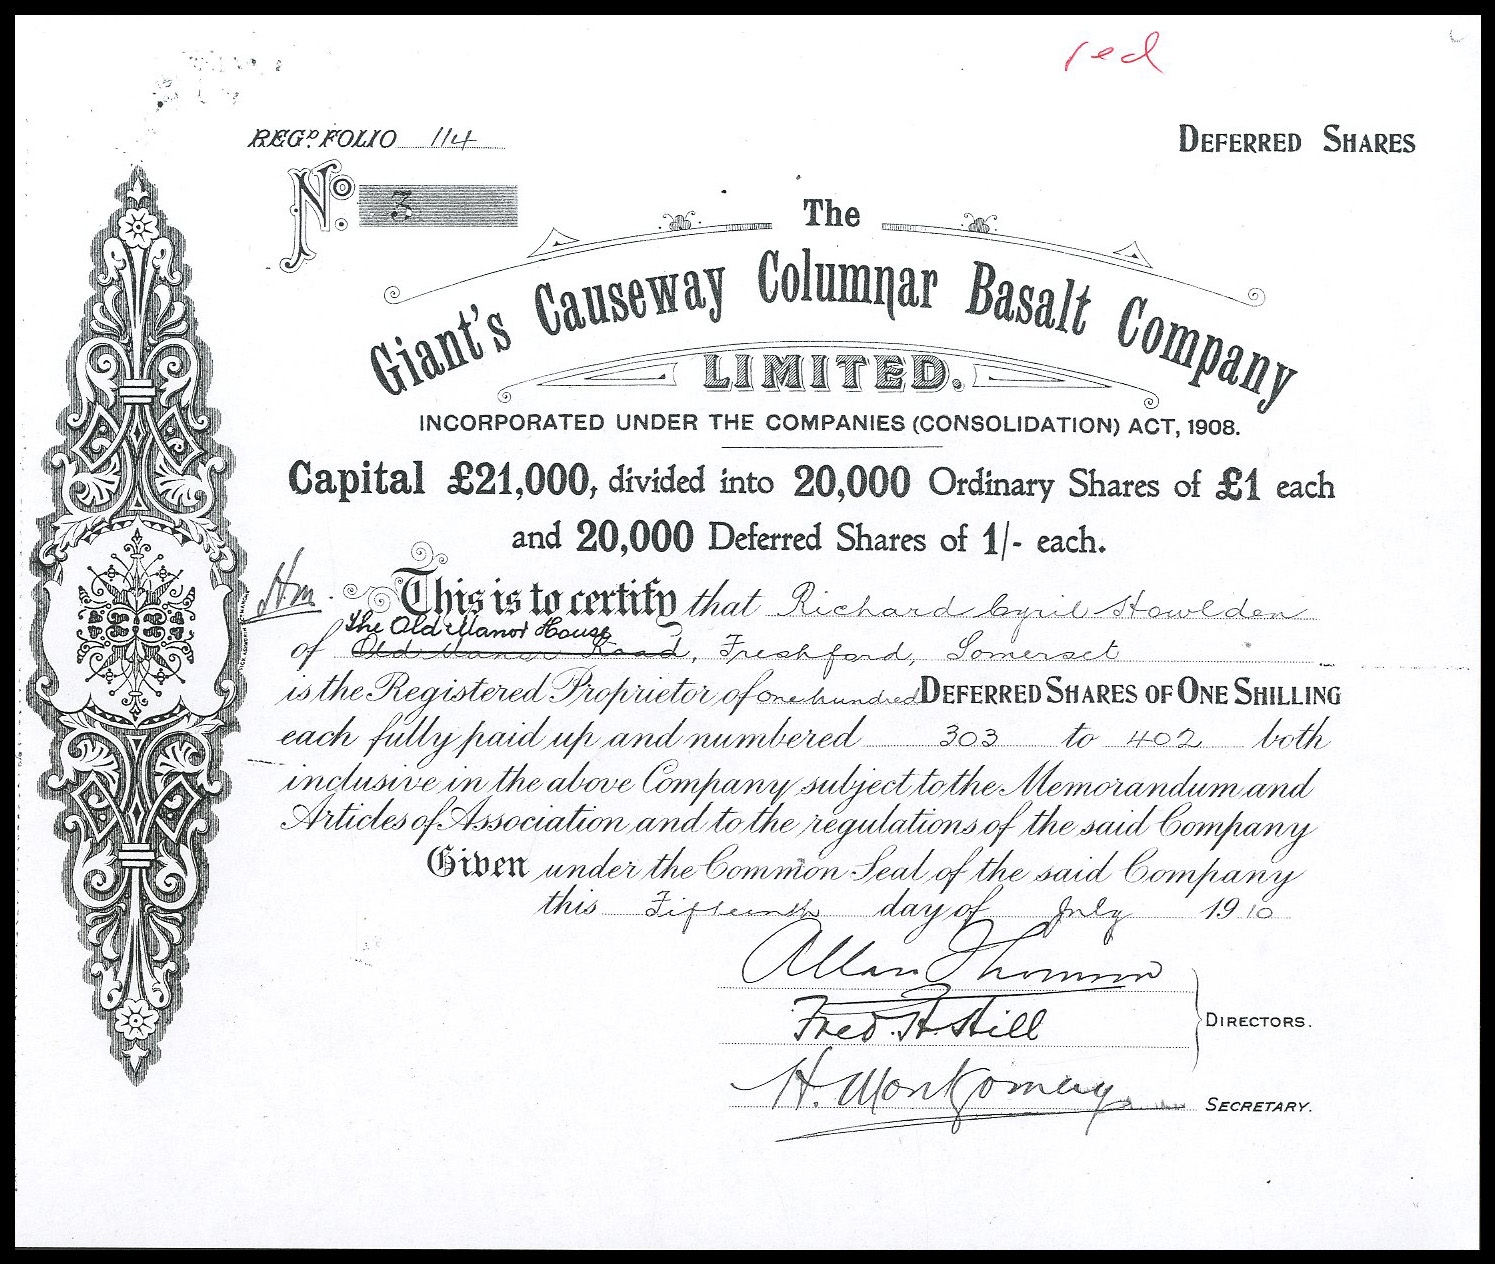 red
REGD. FOLIO 114
DEFERRED SHARES
No. 3
The
Giant's Causeway Columnar Basalt Company
LIMITED.
INCORPORATED UNDER THE COMPANIES (CONSOLIDATION) ACT, 1908.
Capital £21,000, divided into 20,000 Ordinary Shares of £1 each
and 20,000 Deferred Shares of 1/- each.
Hm. This is to certify that Richard Cyril Howlden
The Old Manor House
of Old Manor Road, Freshford, Somerset
is the Registered Proprietor of one hundred DEFERRED SHARES OF ONE SHILLING
each fully paid up and numbered 303 to 402 both
inclusive in the above Company subject to the Memorandum and
Articles of Association and to the regulations of the said Company
Given under the Common Seal of the said Company
this Fifteenth day of July 1910
Allan Thomson
Fred. H. Hill
DIRECTORS.
H. Montgomery
SECRETARY.